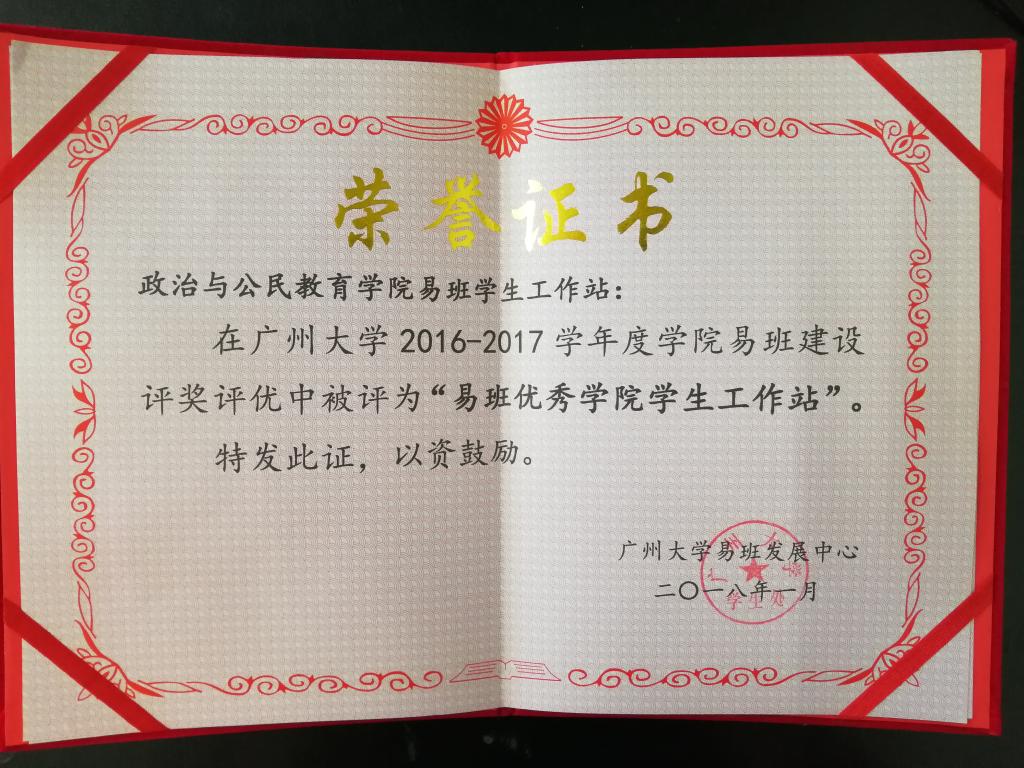 荣誉证书
政治与公民教育学院易班学生工作站：
在广州大学2016-2017学年度学院易班建设
评奖评优中被评为“易班优秀学院学生工作站”。
特发此证，以资鼓励。
广州大学易班发展中心
二〇一八年一月
广州大学
学生处